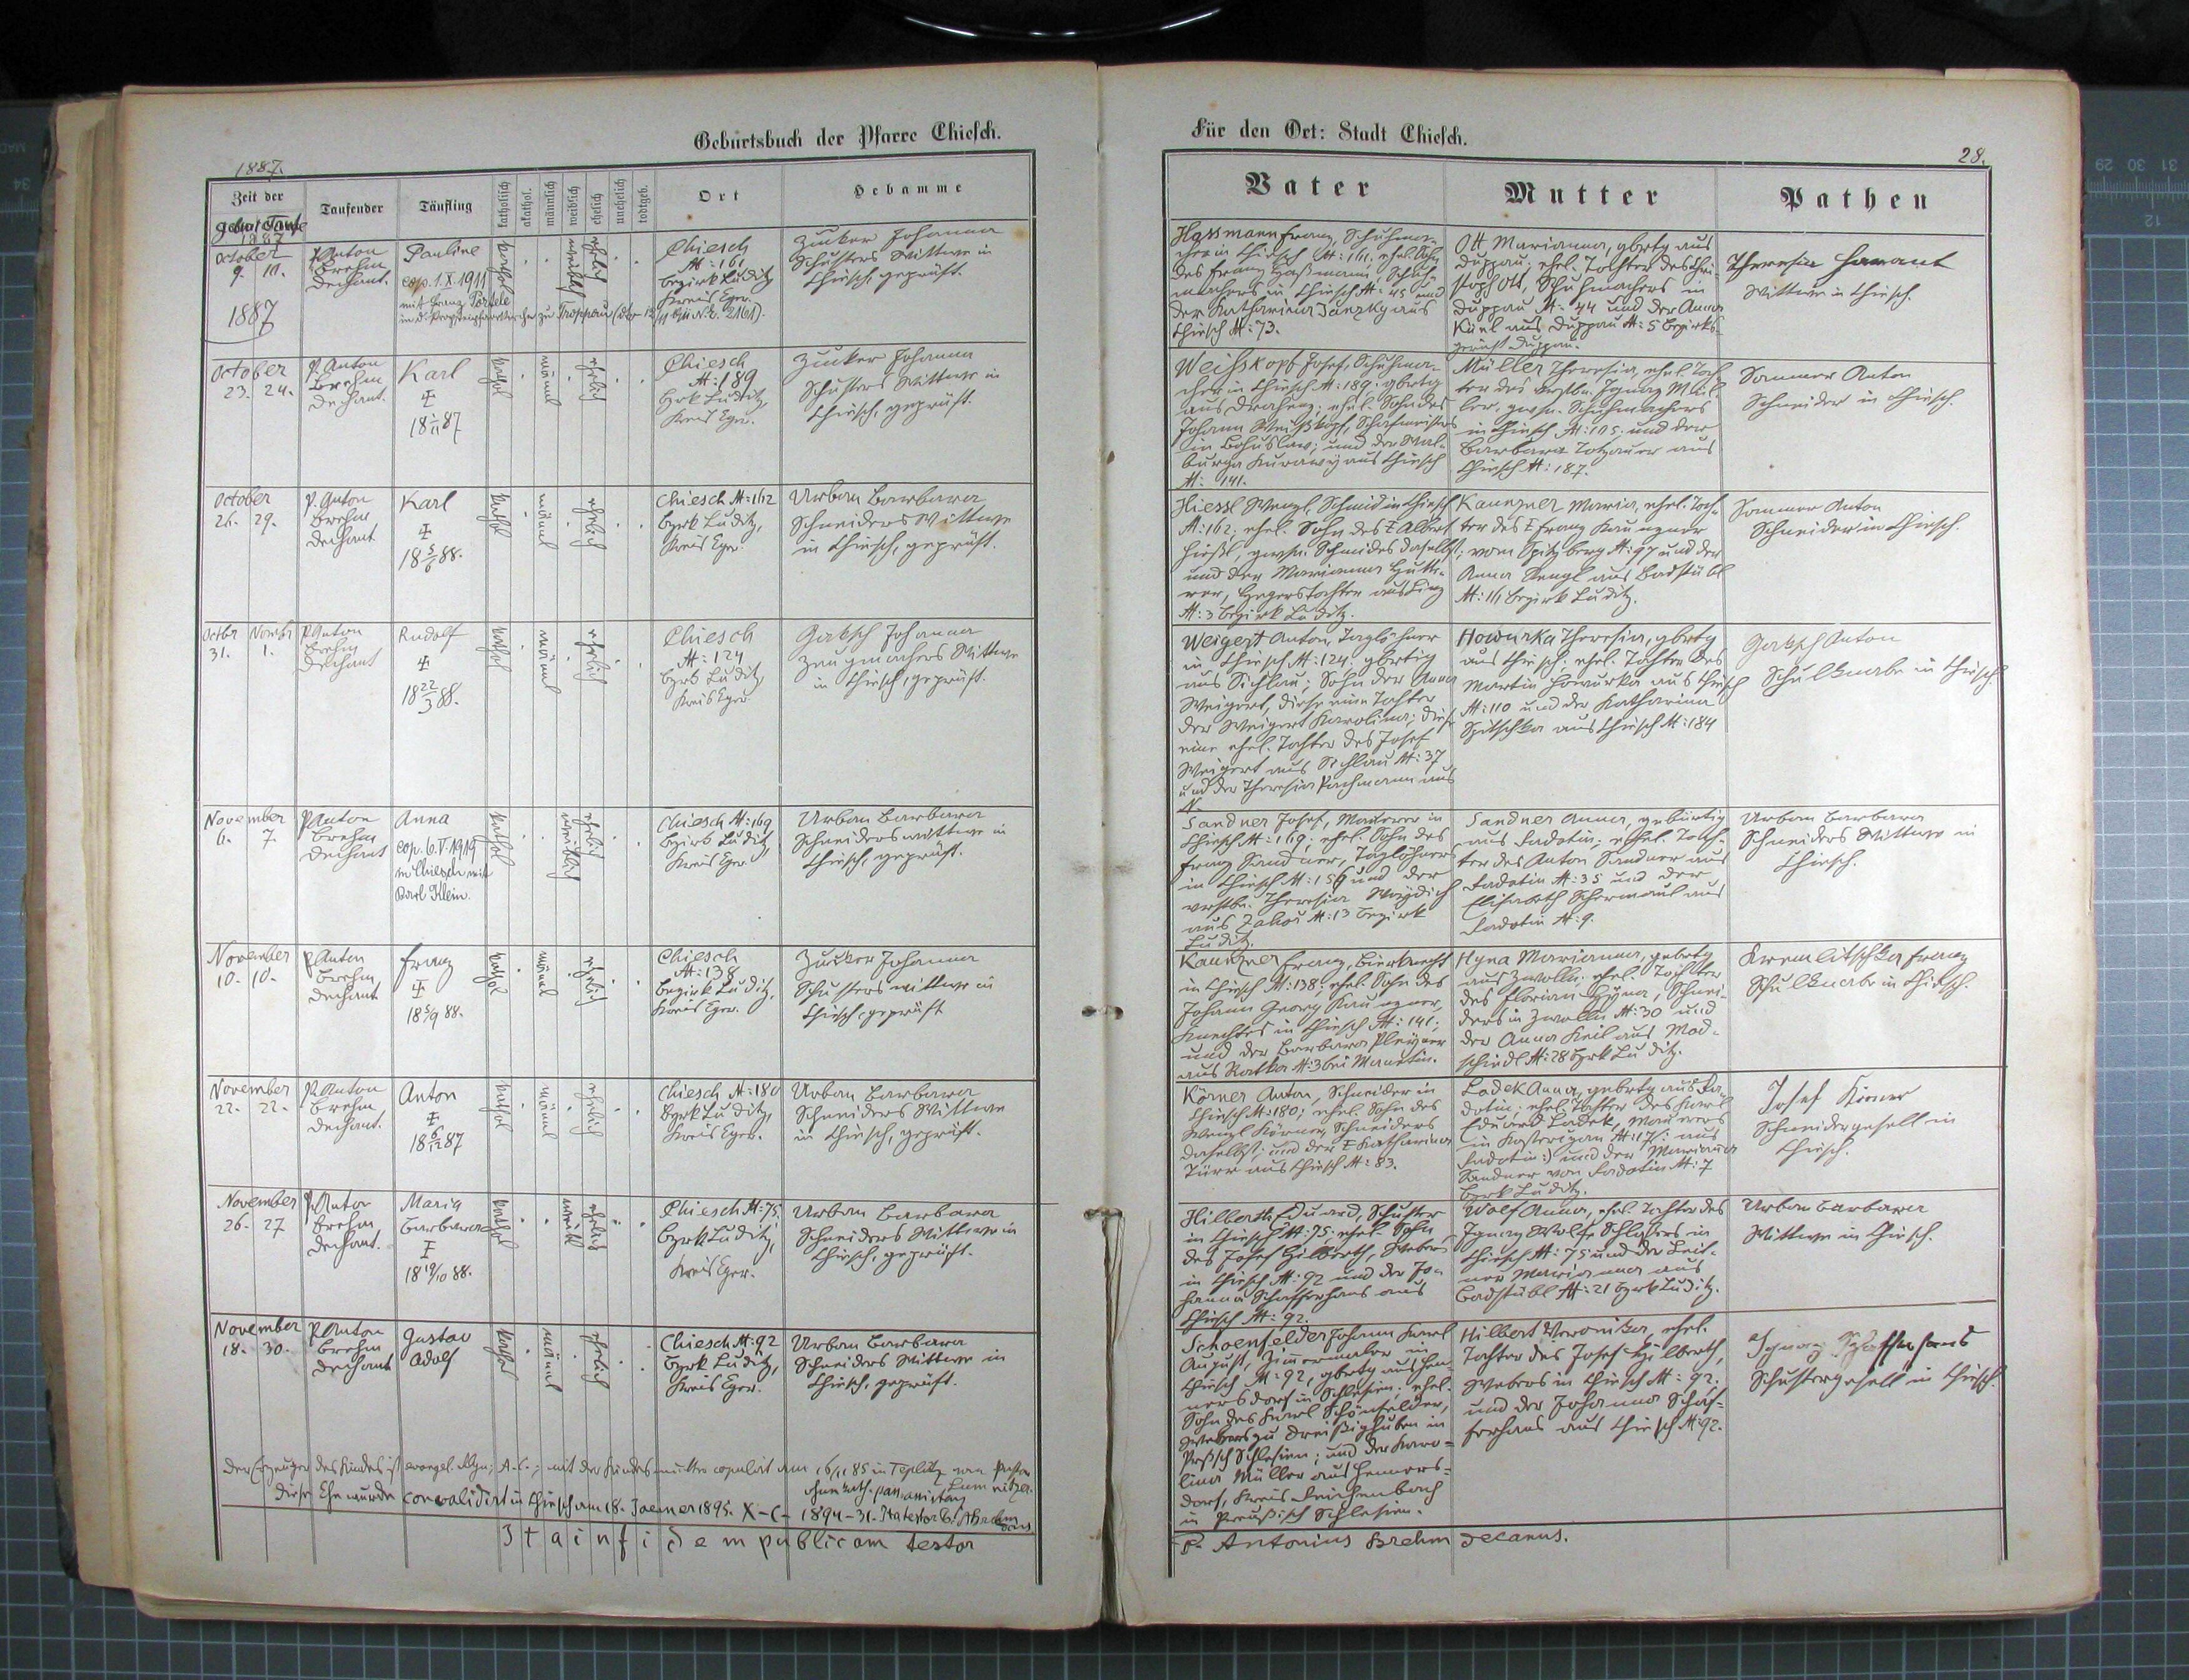 Geburtsbuch der Pfarre Chiesch.
1887.
Zeit der
Geburt Taufe
Taufender
Täufling
katholisch
akathol.
männlich
weiblich
ehelich
unehelich
todtgeb.
Ort
Hebamme
1887
October
9. 10.
1887
P. Anton
Brehm
Dechant.
Pauline
cop. 1.X.1911
mit Franz
zu Troppau
kathol
weiblich
ehelich
Chiesch
N: 161
bezirk Luditz
Kreis Eger.
Zucker Johanna
Schusters Wittwe in
Chiesch, geprüft.
October
23. 24.
P. Anton
Brehm
Dechant.
Karl
kathol
männl
ehelich
Chiesch
N: 189
bzrk Luditz,
Kreis Eger.
Zucker Johanna
Schusters Wittwe in
Chiesch, geprüft.
October
29.
P. Anton
Brehm
Dechant
Karl
18 5/6 88.
kathol
männl
ehelich
Chiesch N: 162
bzrk Luditz,
Kreis Eger.
Urban Barbara
Schneiders Wittwe
in Chiesch, geprüft.
Octbr Novmbr
31. 1.
P. Anton
Brehm
Dechant
Rudolf
18 22/3 88.
kathol
männl
ehelich
Chiesch
N: 124
bzrk Luditz,
Kreis Eger
Gatsch Johanna
Zeugmachers Wittwe
in Chiesch, geprüft.
November
6. 7.
P. Anton
Brehm
Dechant
Anna
cop. 6.V.1919
in Chiesch mit
Karl Klein.
kathol
weiblich
ehelich
Chiesch N: 169
bezirk Luditz,
Kreis Eger.
Urban Barbara
Schneiders wittwe in
Chiesch, geprüft.
November
10. 10.
P. Anton
Brehm
Dechant
Franz
18 5/9 88.
kathol
männl
ehelich
Chiesch
N: 138
bezirk Luditz,
Kreis Eger.
Zucker Johanna
Schusters wittwe in
Chiesch, geprüft
November
22. 22.
P. Anton
Brehm
Dechant.
Anton
18 6/12 87
kathol
männl
ehelich
Chiesch N: 180
bzrk Luditz,
Kreis Eger.
Urban Barbara
Schneiders Wittwe
in Chiesch, geprüft.
November
26. 27
P. Anton
Brehm
Dechant.
Maria
Barbara
18 19/10 88.
kathol
weibl
ehelich
Chiesch N: 75.
bzrk Luditz,
Kreis Eger.
Urban Barbara
Schneiders Wittwe in
Chiesch, geprüft.
November
18. 30.
P. Anton
Brehm
Dechant
Gustav
Adolf
kathol
männl
ehelich
Chiesch N: 92
bzrk Luditz,
Kreis Eger.
Urban Barbara
Schneiders Wittwe in
Chiesch, geprüft.
Der Erzeuger des Kindes ist evangel. A.C.; mit der Kindesmutter copulirt am 16/11 85 in Teplitz
Diese Ehe wurde convalidirt in Chiesch am 18. Jaener 1895.
Ita in fidem publicam testor
Für den Ort: Stadt Chiesch.
28.
Vater
Mutter
Pathen
Hassmann Franz, Schuhma-
cher in Chiesch N: 161. ehel. Sohn
des Franz Haßmann, Schuh-
machers in Chiesch N: 45 und
der Katharina Janzky aus
Chiesch N: 73.
Ott Marianna, gbrtg aus
Duppau, ehel. Tochter des Chri-
stoph Ott, Schuhmachers in
Duppau N: 44 und der Anna
aus Duppau N: 5 Bezirks-
gericht Duppau.
Theresia
Wittwe in Chiesch.
Weißkopf Josef, Schuhma-
cher in Chiesch N: 189; gbrtg
ehel. Sohn des
Johann Weißkopf, Schafmeisters
in Bohuslaw; und der Wal-
burga Kurawy aus Chiesch
N: 141.
Müller Theresia, ehel. Toch-
ter des verstbn. Ignaz Mül-
ler, gwsn. Schuhmachers
in Chiesch N: 105. und der
Barbara Totzauer aus
Chiesch N: 187.
Sommer Anton
Schneider in Chiesch.
Hiessl Wenzl, Schmid in Chiesch
N: 162; ehel. Sohn des Albert
Hiessl, gwsn. Schmides daselbst;
und der Marianna
Hegerstochter aus
N: 3 bezirk Luditz.
Kaunzner Maria, ehel. Toch-
ter des Franz Kaunzner
vom Spitzberg N: 97 und der
Anna Stengl aus Badstübl
N: 11 bezirk Luditz.
Sommer Anton
Schneider in Chiesch.
Weigert Anton, Taglöhner
in Chiesch N: 124. gbrtig
aus Sichlau; Sohn der Anna
Weigert, diese eine Tochter
der Weigert Karolina; diese
eine ehel. Tochter des Josef
Weigert aus Sichlau N: 37
und der Theresia Pachmann aus
N.
Howurka Theresia, gbrtg
aus Chiesch; ehel. Tochter des
Martin Howurka aus Chiesch
N: 110 und der Katharina
Spitschka aus Chiesch N: 184
Gatsch Anton
Schulknabe in Chiesch.
Sandner Josef, Maurer in
Chiesch N: 169; ehel. Sohn des
Franz Sandner, Taglöhners
in Chiesch N: 156 und der
verstbn. Theresia Woydich
aus Zahoř N: 13 bezirk
Luditz.
Sandner Anna, gebürtig
aus Ladotin; ehel. Toch-
ter des Anton Sandner aus
Ladotin N: 35 und der
Elisabeth Schermaul aus
Ladotin N: 9.
Urban Barbara
Schneiders Wittwe in
Chiesch.
Kaunzner Franz, Bierknecht
in Chiesch N: 138; ehel. Sohn des
Johann Georg Kaunzner,
Knechtes in Chiesch N: 141;
und der Barbara Pleyer
aus Ratka N: 3 bei Manetin.
Hyna Marianna, gebrtg
aus Zwolln. ehel. Tochter
des Florian Hyna, Schnei-
ders in Zwolln N: 30 und
der Anna Keil aus Mod-
schiedl N: 28 bzrk Luditz.
Kremlitschka Franz
Schulknabe in Chiesch.
Körner Anton, Schneider in
Chiesch N: 180; ehel. Sohn des
Wenzl Körner, Schneiders
daselbst; und der Katharina
Türr aus Chiesch N: 83.
Ladek Anna, gebrtg aus La-
dotin; ehel. Tochter des Karl
Eduard Ladek, Maurers
aus
Ladotin:) und der Marianna
Sandner von Ladotin N: 7
bzrk Luditz.
Josef Körner
Schneidergesell in
Chiesch.
Hilberth Eduard, Schuster
in Chiesch N: 75; ehel. Sohn
des Josef Hilberth, Webers
in Chiesch N: 92 und der Jo-
hanna Schafferhans aus
Chiesch N: 92.
Wolf Anna, ehel. Tochter des
Ignaz Wolf, Schlossers in
Chiesch N: 75 und der Leit-
ner Marianna aus
Badstübl N: 21 bzrk Luditz.
Urban Barbara
Wittwe in Chiesch.
Schoenfelder Johann Karl
August, Zimmermaler in
Chiesch N: 92, gbrtg aus Hen-
nersdorf in Schlesien; ehel.
Sohn des Karl Schönfelder,
Webers zu Dreißighuben in
Preßsch Schlesien; und der Karo-
lina Müller aus Henners-
dorf, Kreis Reichenbach
in Preußisch Schlesien.
Hilbert Veronika, ehel.
Tochter des Josef Hilberth,
Webers in Chiesch N: 92.
und der Johanna Schaf-
ferhans aus Chiesch N: 92.
Ignaz Schafferhans
Schustergesell in Chiesch.
P. Antonius Brehm decanus.